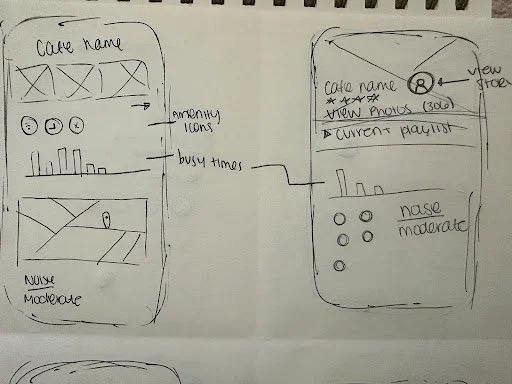 Cafe name
Amenity
Icons
busy times
Noise
Moderate
View
Story
Cafe name
View Photos (306)
Current playlist
noise
moderate